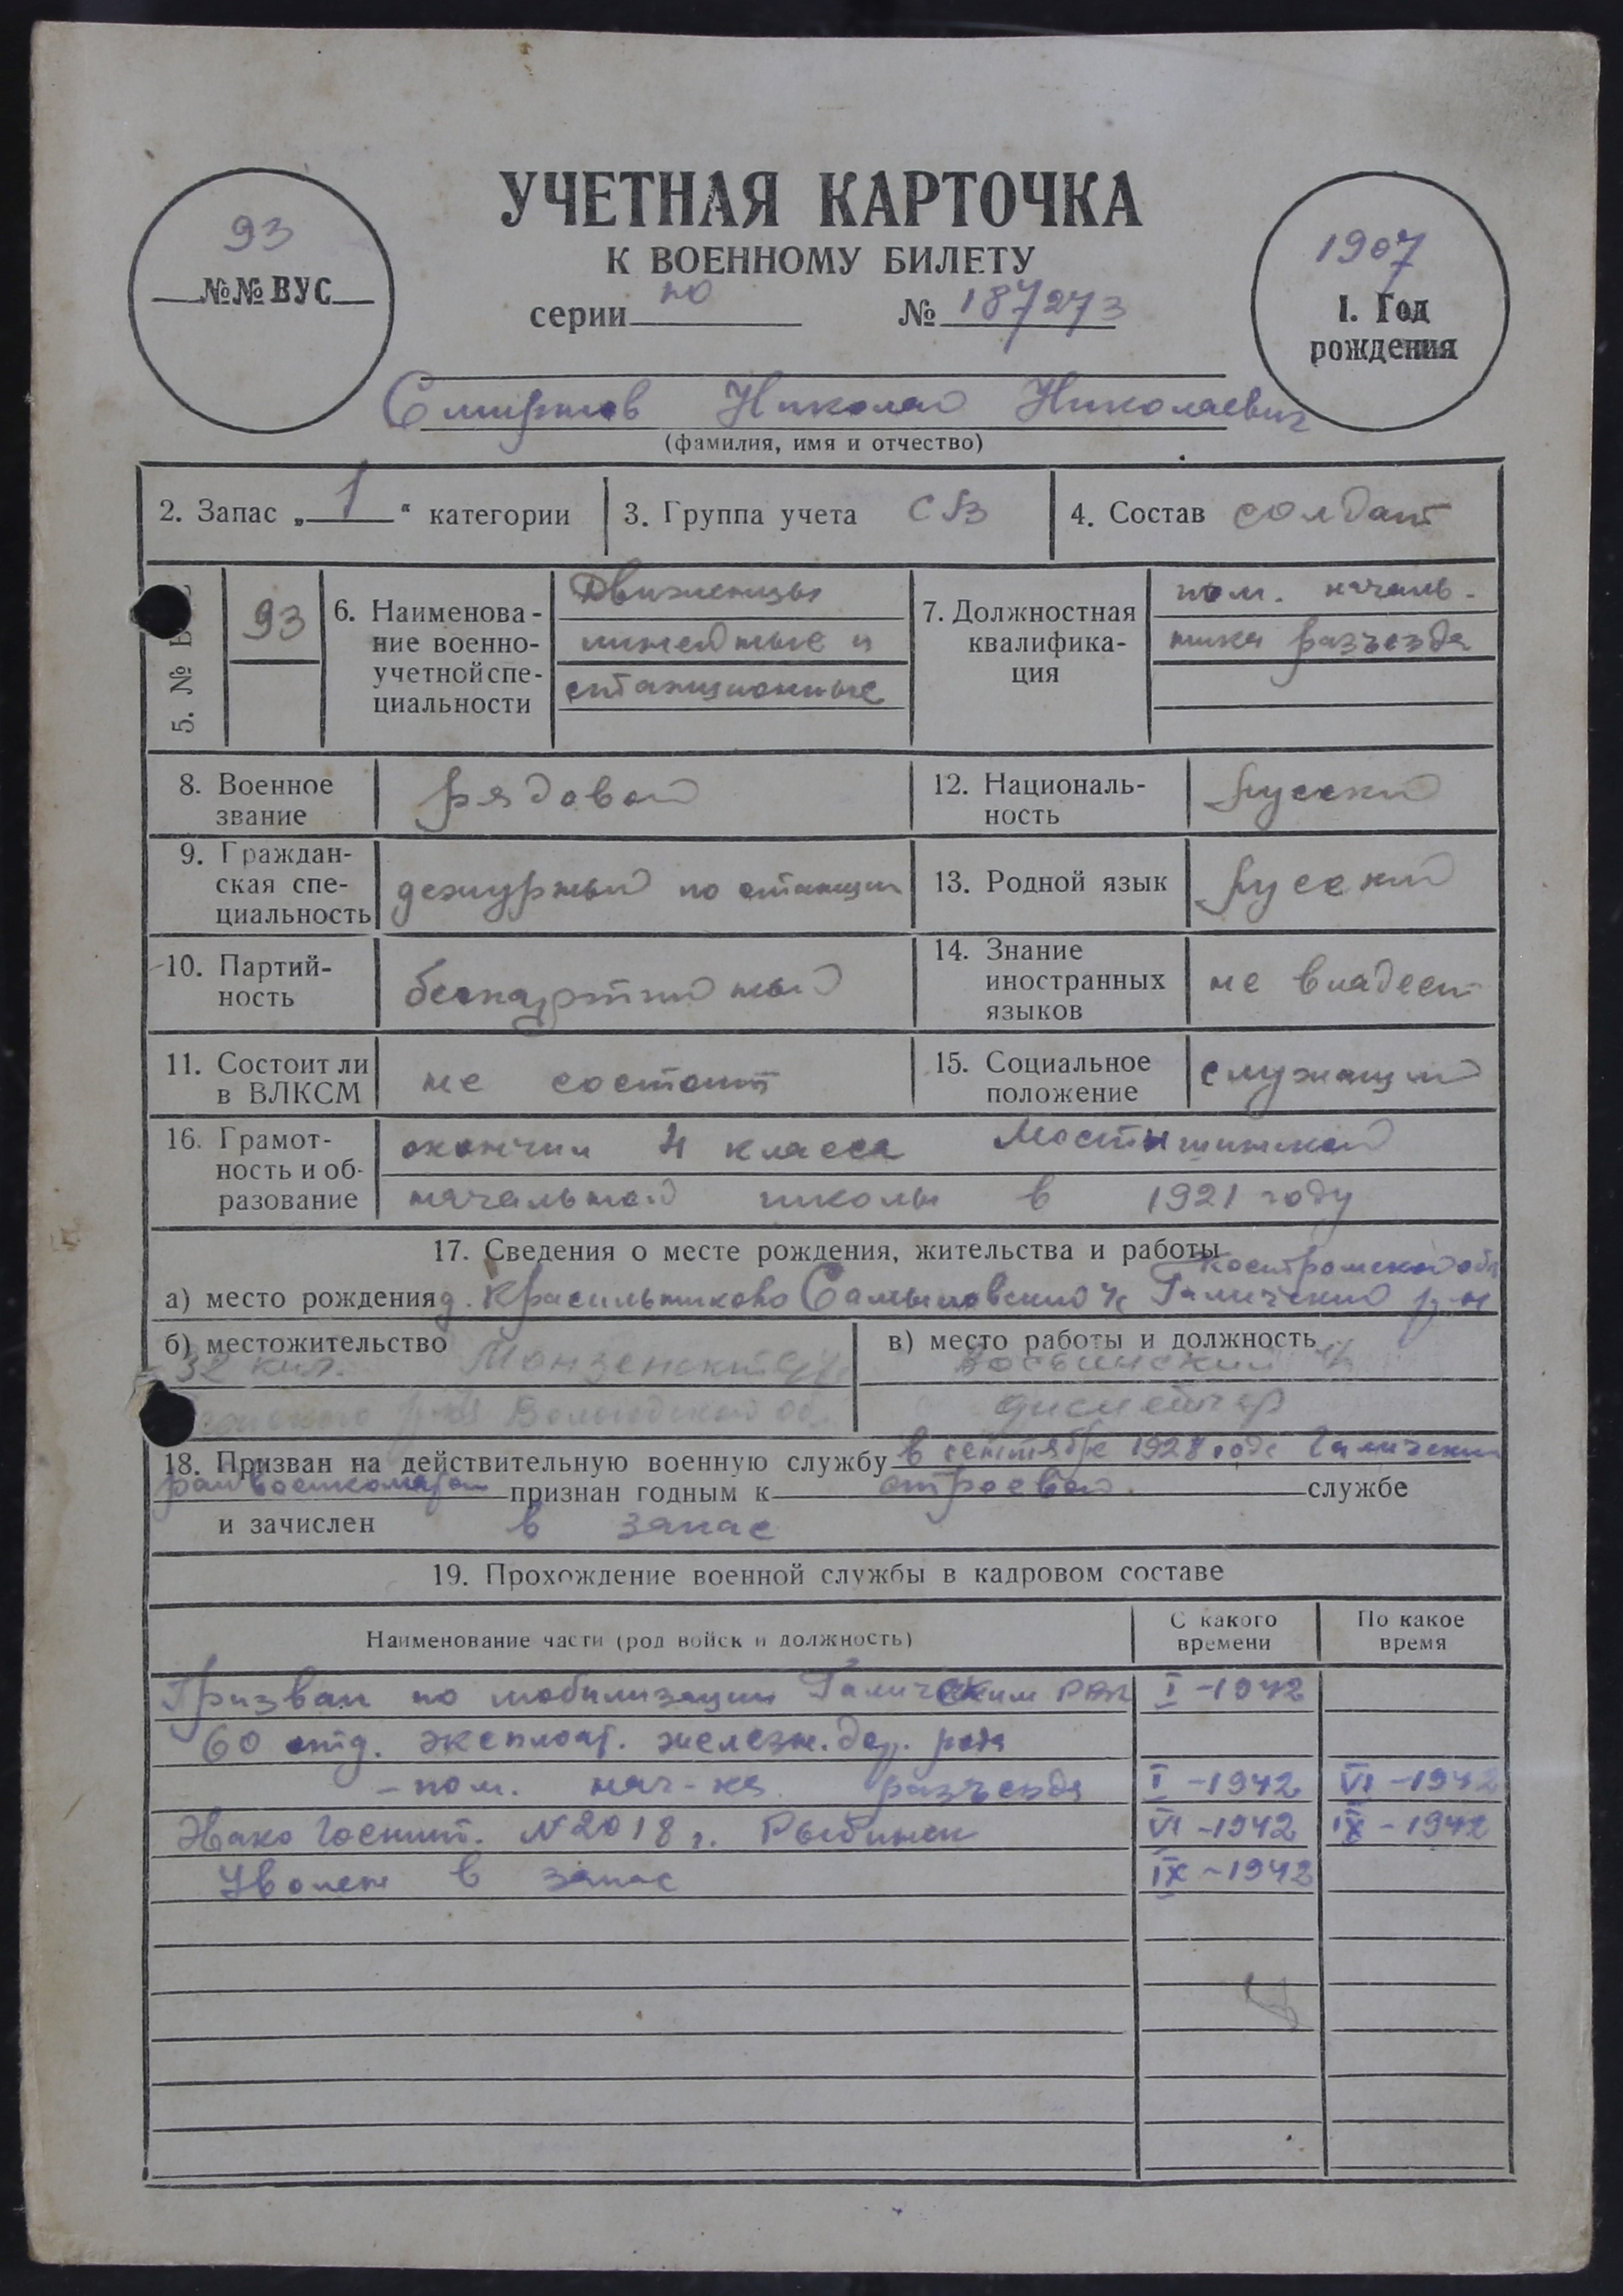 УЧЕТНАЯ КАРТОЧКА
К ВОЕННОМУ БИЛЕТУ
93
№№ ВУС
серии по № 187273
1907
1. Год
рождения
Смирнов Николай Николаевич
(фамилия, имя и отчество)
2. Запас „1“ категории
3. Группа учета СВ
4. Состав солдат
5. №
93
6. Наименова-
ние военно-
учетной спе-
циальности
Движенцы
линейные и
станционные
7. Должностная
квалифика-
ция
пом. началь-
ника разъезда
8. Военное
звание
рядовой
12. Националь-
ность
русский
9. Граждан-
ская спе-
циальность
дежурный по станции
13. Родной язык
русский
10. Партий-
ность
беспартийный
14. Знание
иностранных
языков
не владеет
11. Состоит ли
в ВЛКСМ
не состоит
15. Социальное
положение
служащий
16. Грамот-
ность и об-
разование
окончил 4 класса
начальной школы в 1921 году
17. Сведения о месте рождения, жительства и работы
Костромской обл
а) место рождения д. Красильниково Галичский р-н
б) местожительство
32 кил.
р-на Вологодской об.
в) место работы и должность
диспетчер
18. Призван на действительную военную службу в сентябре 1928 года Галичским
райвоенкоматом признан годным к строевой службе
и зачислен в запас
19. Прохождение военной службы в кадровом составе
Наименование части (род войск и должность)
С какого
времени
По какое
время
Призван по мобилизации Галичским РВК I-1942
60 отд. эксплоат. железн. дор. рота
- пом. нач-ка разъезда I-1942 VI-1942
Эвако Госпит. №2018 г. Рыбинск VI-1942 IX-1942
Уволен в запас IX-1942